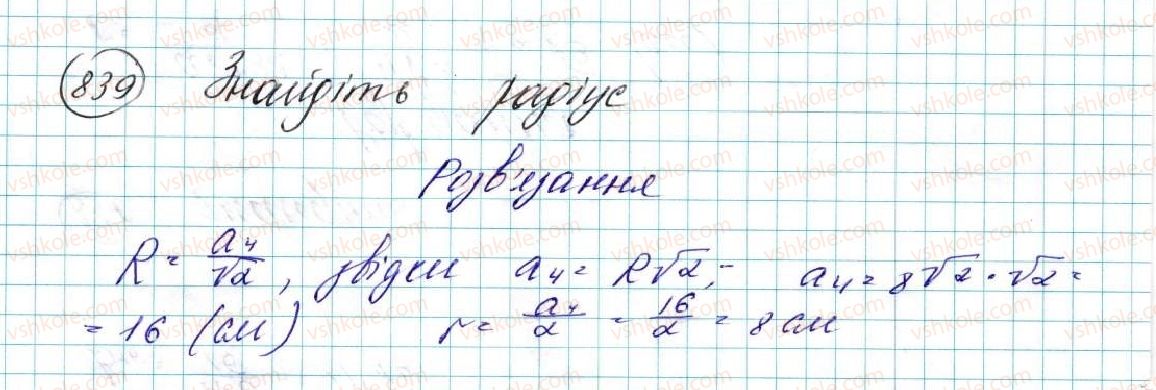 839 Знайдіть радіус
Розв'язання
R = a₄/√2, звідки a₄ = R√2; a₄ = 8√2 · √2 =
= 16 (см) r = a₄/2 = 16/2 = 8 см